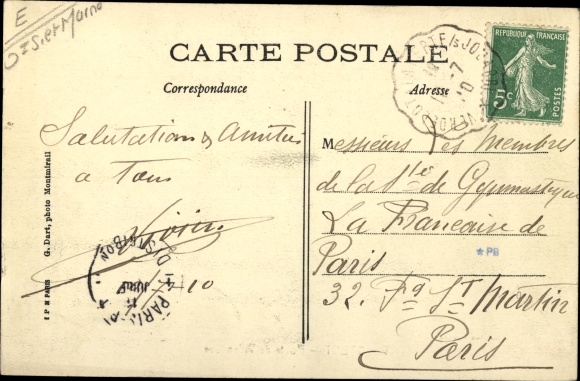 E
Sie et Marne
CARTE POSTALE
Correspondance
Adresse
REPUBLIQUE FRANÇAISE
5c
POSTES
Salutations & Amitiés
a tous
10
PARIS
DISTRIBUTION
G. Dart, photo Montmirail
I P M PARIS
Messieurs les Membres
de la Sté de Gymnastique
La Française de
Paris
*PB
32. Fg St Martin
Paris